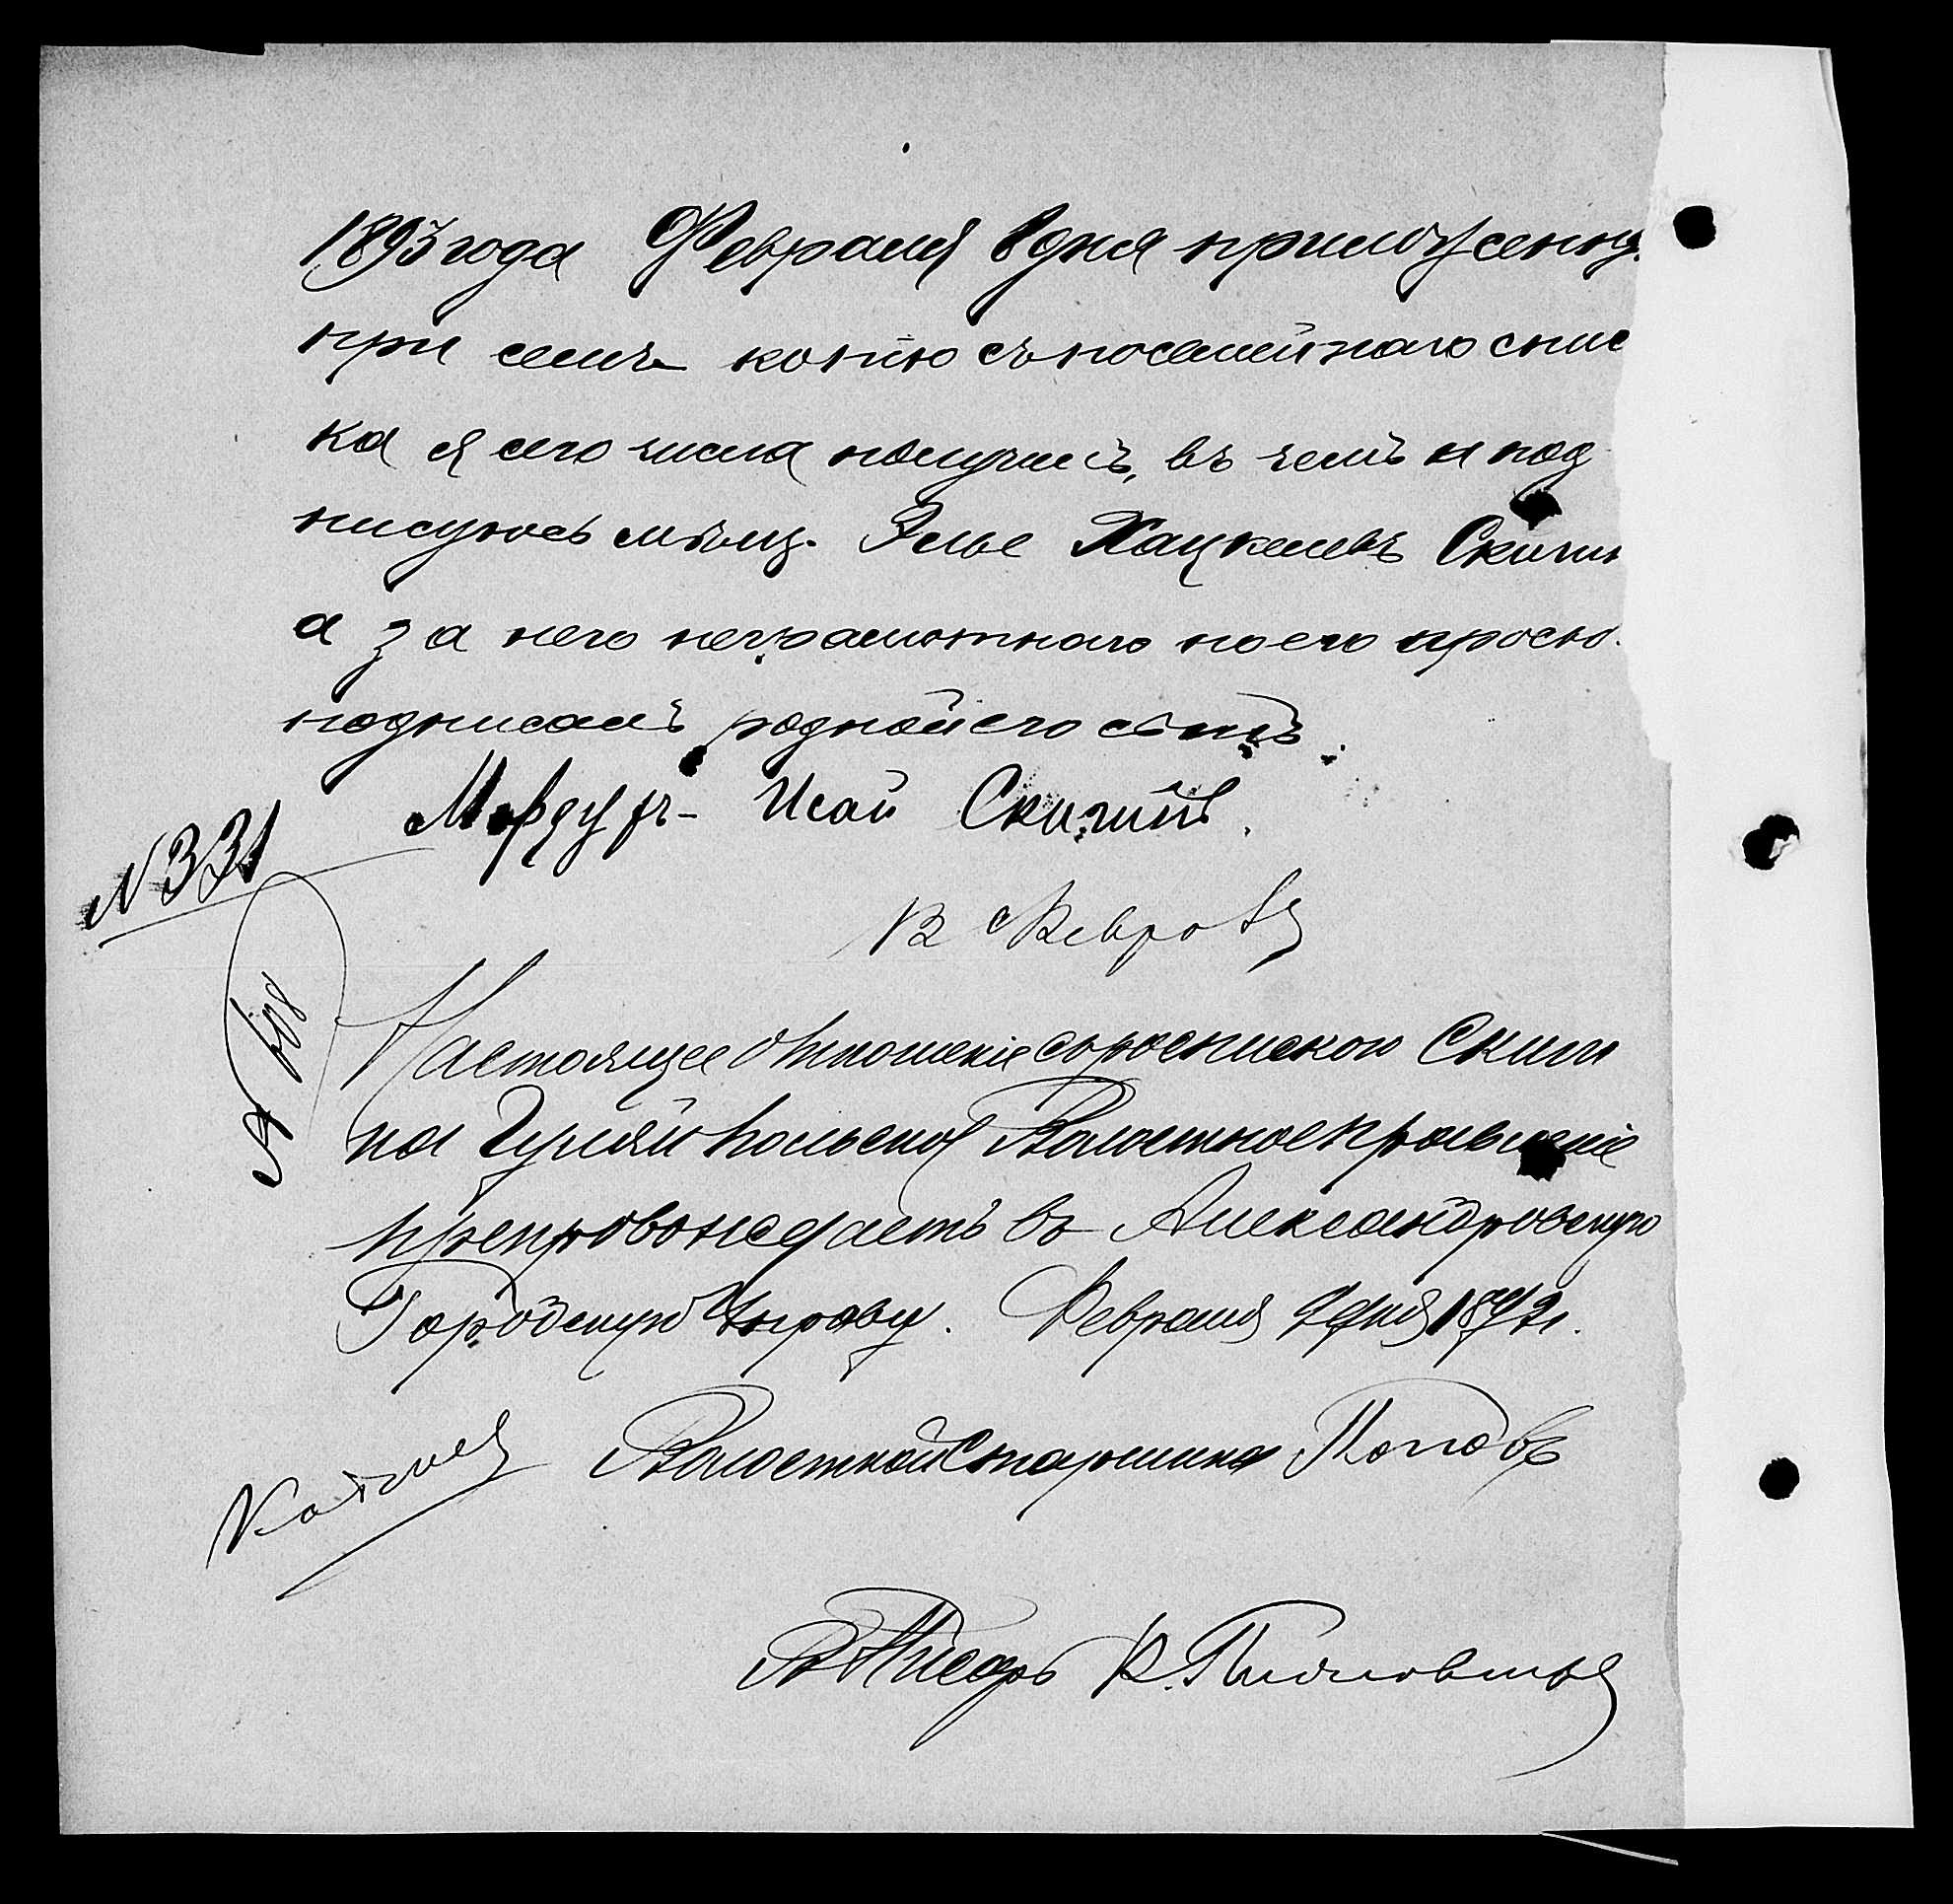 1893 года Февраля 8 дня приложенну
при семъ копію съ посемейнаго спис
ка я сего числа получилъ, въ чемъ и под
писуюсь мѣщ. Элье Хацкелевъ Скигин
а за него неграмотнаго по его прось.
подписалъ родной его сынъ
Мордух- Исай Скигинъ.
№ 331
12 Февраля
Настоящее отношеніе съ роспиской Скиги
на Гуляйпольское Волостное правленіе
препровождаетъ въ Александровскую
Городскую Управу. Февраля 9 дня 1893 г.
Волостной Старшина Поповъ
В Писарь К.